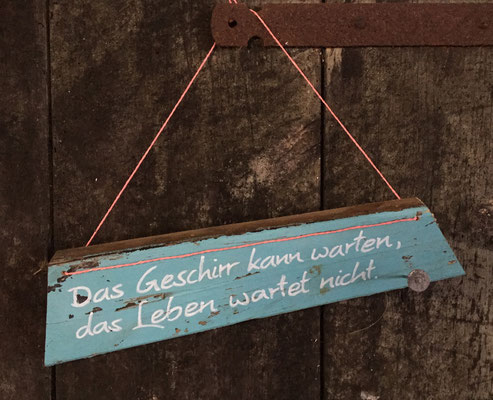 Das Geschirr kann warten,
das Leben wartet nicht.